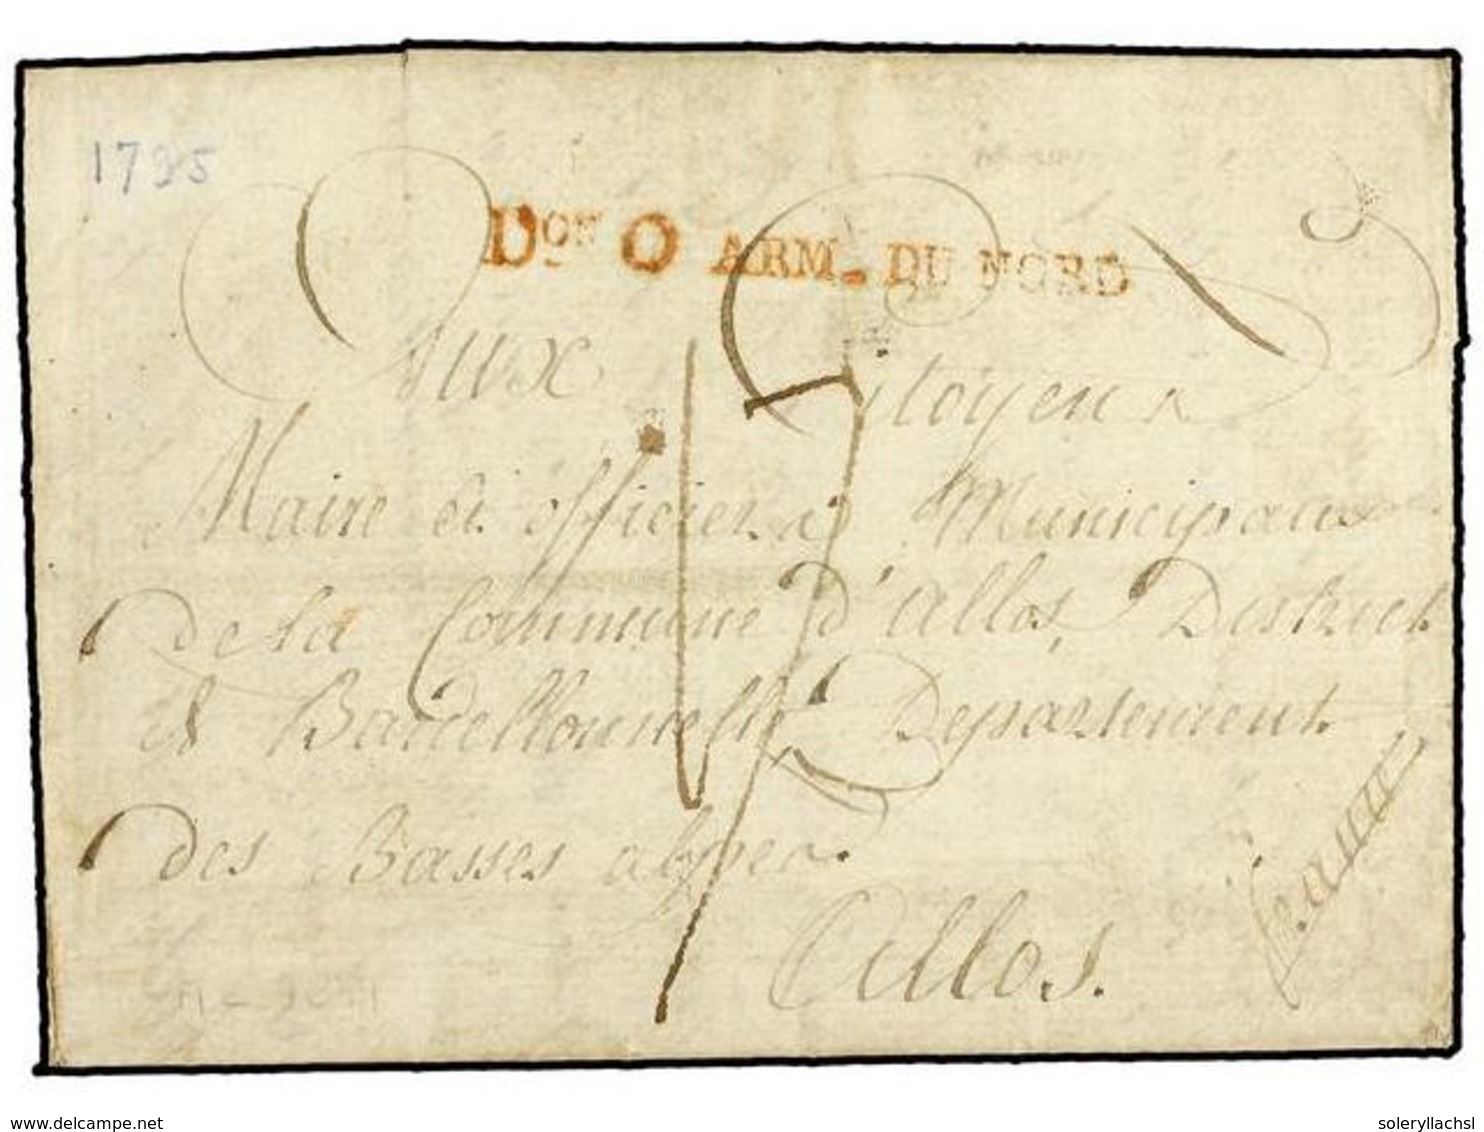 1795
Don O ARM. DU NORD
Aux Citoyens
Maire et officiers Municipaux
de la Commune d'allos, District
de Barcellonnette Departement
des Basses alpes.
allos.
17
delcampe.net
soleryllachsl